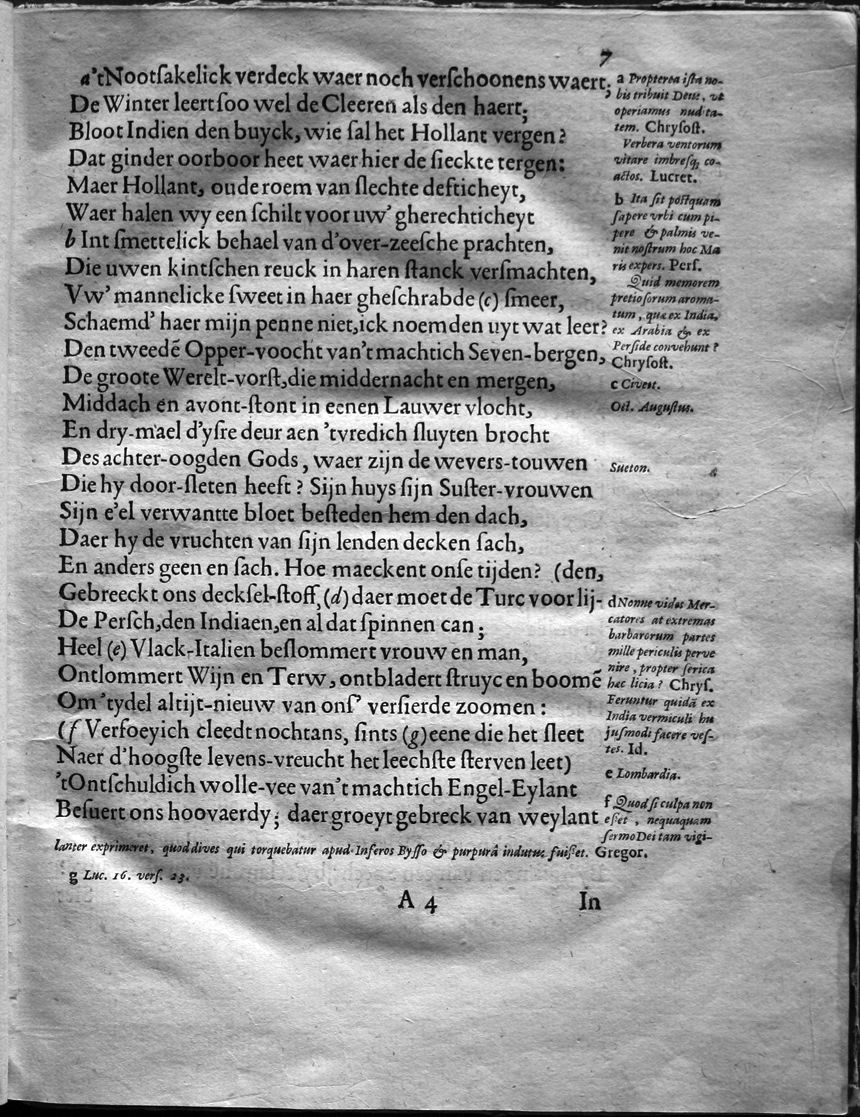 7
a 'tNootſakelick verdeck waer noch verſchoonens waert;
De Winter leert ſoo wel de Cleeren als den haert;
Bloot Indien den buyck, wie ſal het Hollant vergen?
Dat ginder oorboor heet waer hier de ſieckte tergen:
Maer Hollant, oude roem van ſlechte defticheyt,
Waer halen wy een ſchilt voor uw' gherechticheyt
b Int ſmettelick behael van d'over-zeeſche prachten,
Die uwen kintſchen reuck in haren ſtanck verſmachten,
Vw' mannelicke ſweet in haer gheſchrabde (c) ſmeer,
Schaemd' haer mijn penne niet, ick noemden uyt wat leer?
Den tweedē Opper-voocht van't machtich Seven-bergen,
De groote Werelt-vorſt, die middernacht en mergen,
Middach en avont-ſtont in eenen Lauwer vlocht,
En dry-mael d'yſre deur aen 'tvredich ſluyten brocht
Des achter-oogden Gods, waer zijn de wevers-touwen
Die hy door-ſleten heeft? Sijn huys ſijn Suſter-vrouwen
Sijn e'el verwantte bloet beſteden hem den dach,
Daer hy de vruchten van ſijn lenden decken ſach,
En anders geen en ſach. Hoe maeckent onſe tijden? (den,
Gebreeckt ons deckſel-ſtoff, (d) daer moet de Turc voor lij-
De Perſch, den Indiaen, en al dat ſpinnen can;
Heel (e) Vlack-Italien beſlommert vrouw en man,
Ontlommert Wijn en Terw, ontbladert ſtruyc en boomē
Om 'tydel altijt-nieuw van onſ' verſierde zoomen:
(f Verfoeyich cleedt nochtans, ſints (g) eene die het ſleet
Naer d'hoogſte levens-vreucht het leechſte ſterven leet)
'tOntſchuldich wolle-vee van't machtich Engel-Eylant
Beſuert ons hoovaerdy; daer groeyt gebreck van weylant
a Propterea iſta no-
bis tribuit Deus, vt
operiamus nudita-
tem. Chryſoſt.
Verbera ventorum
vitare imbreſq; co-
actos. Lucret.
b Ita fit poſtquam
ſapere vrbi cum pi-
pere & palmis ve-
nit noſtrum hoc Ma
ris expers. Perſ.
Quid memorem
pretioſorum aroma-
tum, quæ ex India,
ex Arabia & ex
Perſide convehunt?
Chryſoſt.
c Civett.
Oct. Auguſtus.
Sueton.
d Nonne vides Mer-
catores at extremas
barbarorum partes
mille periculis perve
nire, propter ſerica
hæc licia? Chryſ.
Feruntur quidā ex
India vermiculi hu
juſmodi facere veſ-
tes. Id.
e Lombardia.
f Quod ſi culpa non
eſſet, nequaquam
ſermo Dei tam vigi-
lanter exprimeret, quod dives qui torquebatur apud Inferos Byſſo & purpurâ indutus fuiſſet. Gregor.
g Luc. 16. verſ. 23.
A 4 In